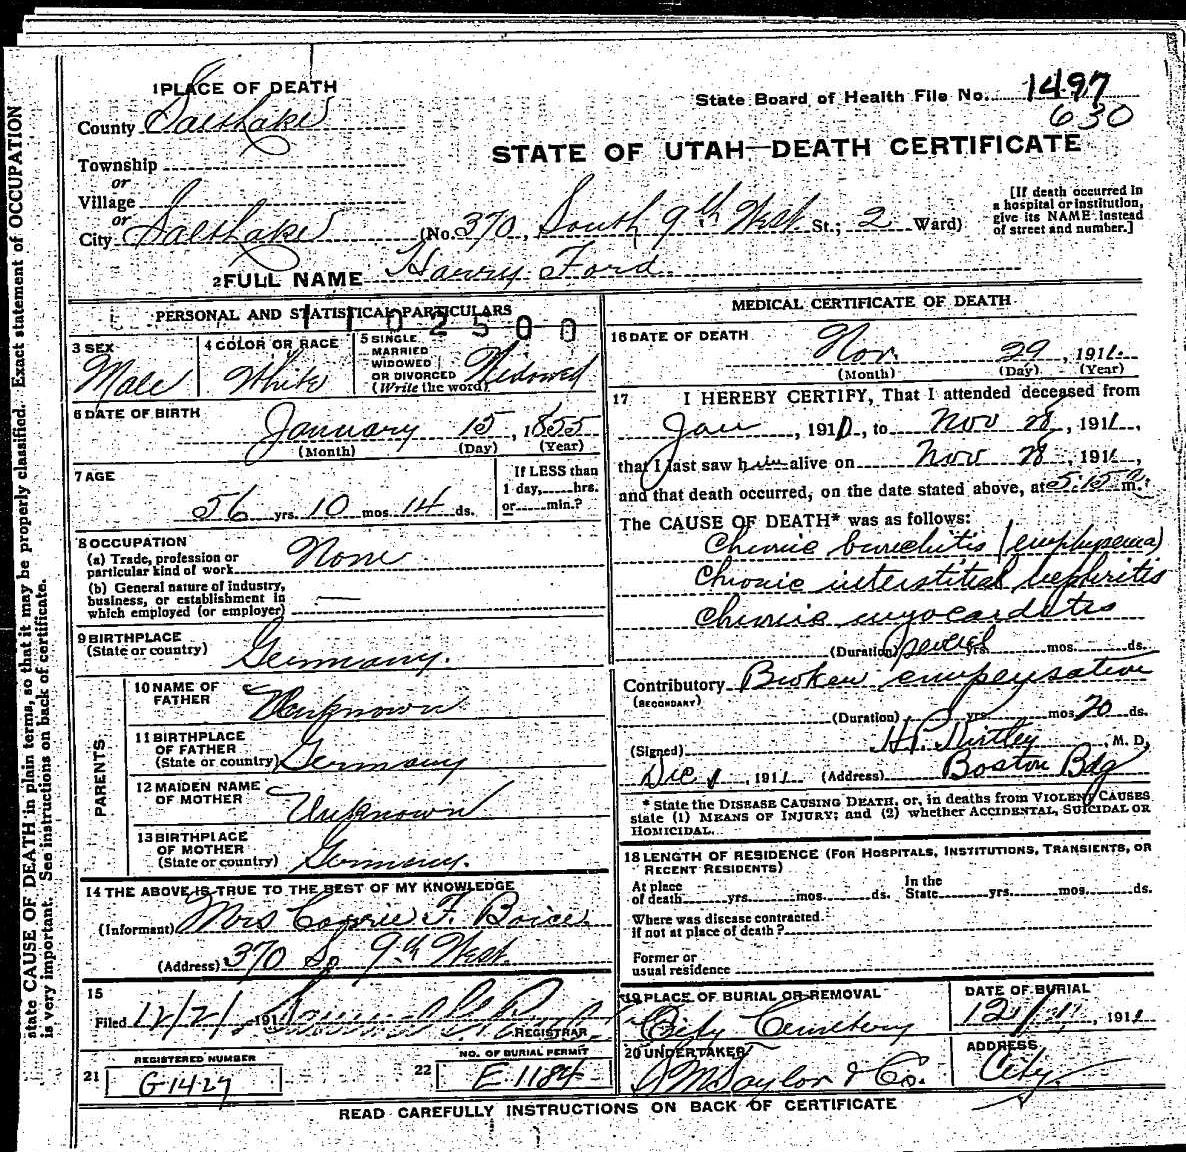 state CAUSE OF DEATH in plain terms, so that it may be properly classified. Exact statement of OCCUPATION
is very important. See instructions on back of certificate.
1 PLACE OF DEATH
State Board of Health File No. 1497
630
County Salt Lake
STATE OF UTAH—DEATH CERTIFICATE
Township
or
Village
or
City Salt Lake (No. 370, South 9th West St.; 2 Ward)
[If death occurred in
a hospital or institution,
give its NAME instead
of street and number.]
2 FULL NAME Harry Ford
PERSONAL AND STATISTICAL PARTICULARS
1102500
3 SEX
Male
4 COLOR OR RACE
White
5 SINGLE
MARRIED
WIDOWED
OR DIVORCED
(Write the word)
Widowed
6 DATE OF BIRTH
January 15, 1855
(Month) (Day) (Year)
7 AGE
56 yrs. 10 mos. 14 ds.
If LESS than
1 day, hrs.
or min.?
8 OCCUPATION
(a) Trade, profession or
particular kind of work None
(b) General nature of industry,
business, or establishment in
which employed (or employer) —
9 BIRTHPLACE
(State or country) Germany.
PARENTS
10 NAME OF
FATHER Unknown
11 BIRTHPLACE
OF FATHER
(State or country) Germany
12 MAIDEN NAME
OF MOTHER Unknown
13 BIRTHPLACE
OF MOTHER
(State or country) Germany.
14 THE ABOVE IS TRUE TO THE BEST OF MY KNOWLEDGE
(Informant) Mrs Carrie F. Boice.
(Address) 370 So 9th West.
15
Filed 12/2/ 191
REGISTRAR
REGISTERED NUMBER
21 G-1427
NO. OF BURIAL PERMIT
22 E-1184
MEDICAL CERTIFICATE OF DEATH
16 DATE OF DEATH
Nov. 29, 1911.
(Month) (Day) (Year)
17 I HEREBY CERTIFY, That I attended deceased from
Jan, 1911, to Nov 28, 1911,
that I last saw him alive on Nov 28, 1911,
and that death occurred, on the date stated above, at 5:15 a m.
The CAUSE OF DEATH* was as follows:
Chronic bronchitis (emphysema)
Chronic interstitial nephritis
Chronic myocarditis
(Duration) several yrs. mos. ds.
Contributory Broken compensation
(SECONDARY)
(Duration) yrs. mos. 20 ds.
(Signed) H.P. Kirtley, M. D.
Dec 1, 1911 (Address) Boston Bdg
* State the DISEASE CAUSING DEATH, or, in deaths from VIOLENT CAUSES
state (1) MEANS OF INJURY; and (2) whether ACCIDENTAL, SUICIDAL OR
HOMICIDAL.
18 LENGTH OF RESIDENCE (FOR HOSPITALS, INSTITUTIONS, TRANSIENTS, OR
RECENT RESIDENTS)
At place
of death yrs. mos. ds.
In the
State yrs. mos. ds.
Where was disease contracted
if not at place of death?
Former or
usual residence
19 PLACE OF BURIAL OR REMOVAL
City Cemetery
DATE OF BURIAL
12/1, 1911
20 UNDERTAKER
S M Taylor & Co.
ADDRESS
City.
READ CAREFULLY INSTRUCTIONS ON BACK OF CERTIFICATE